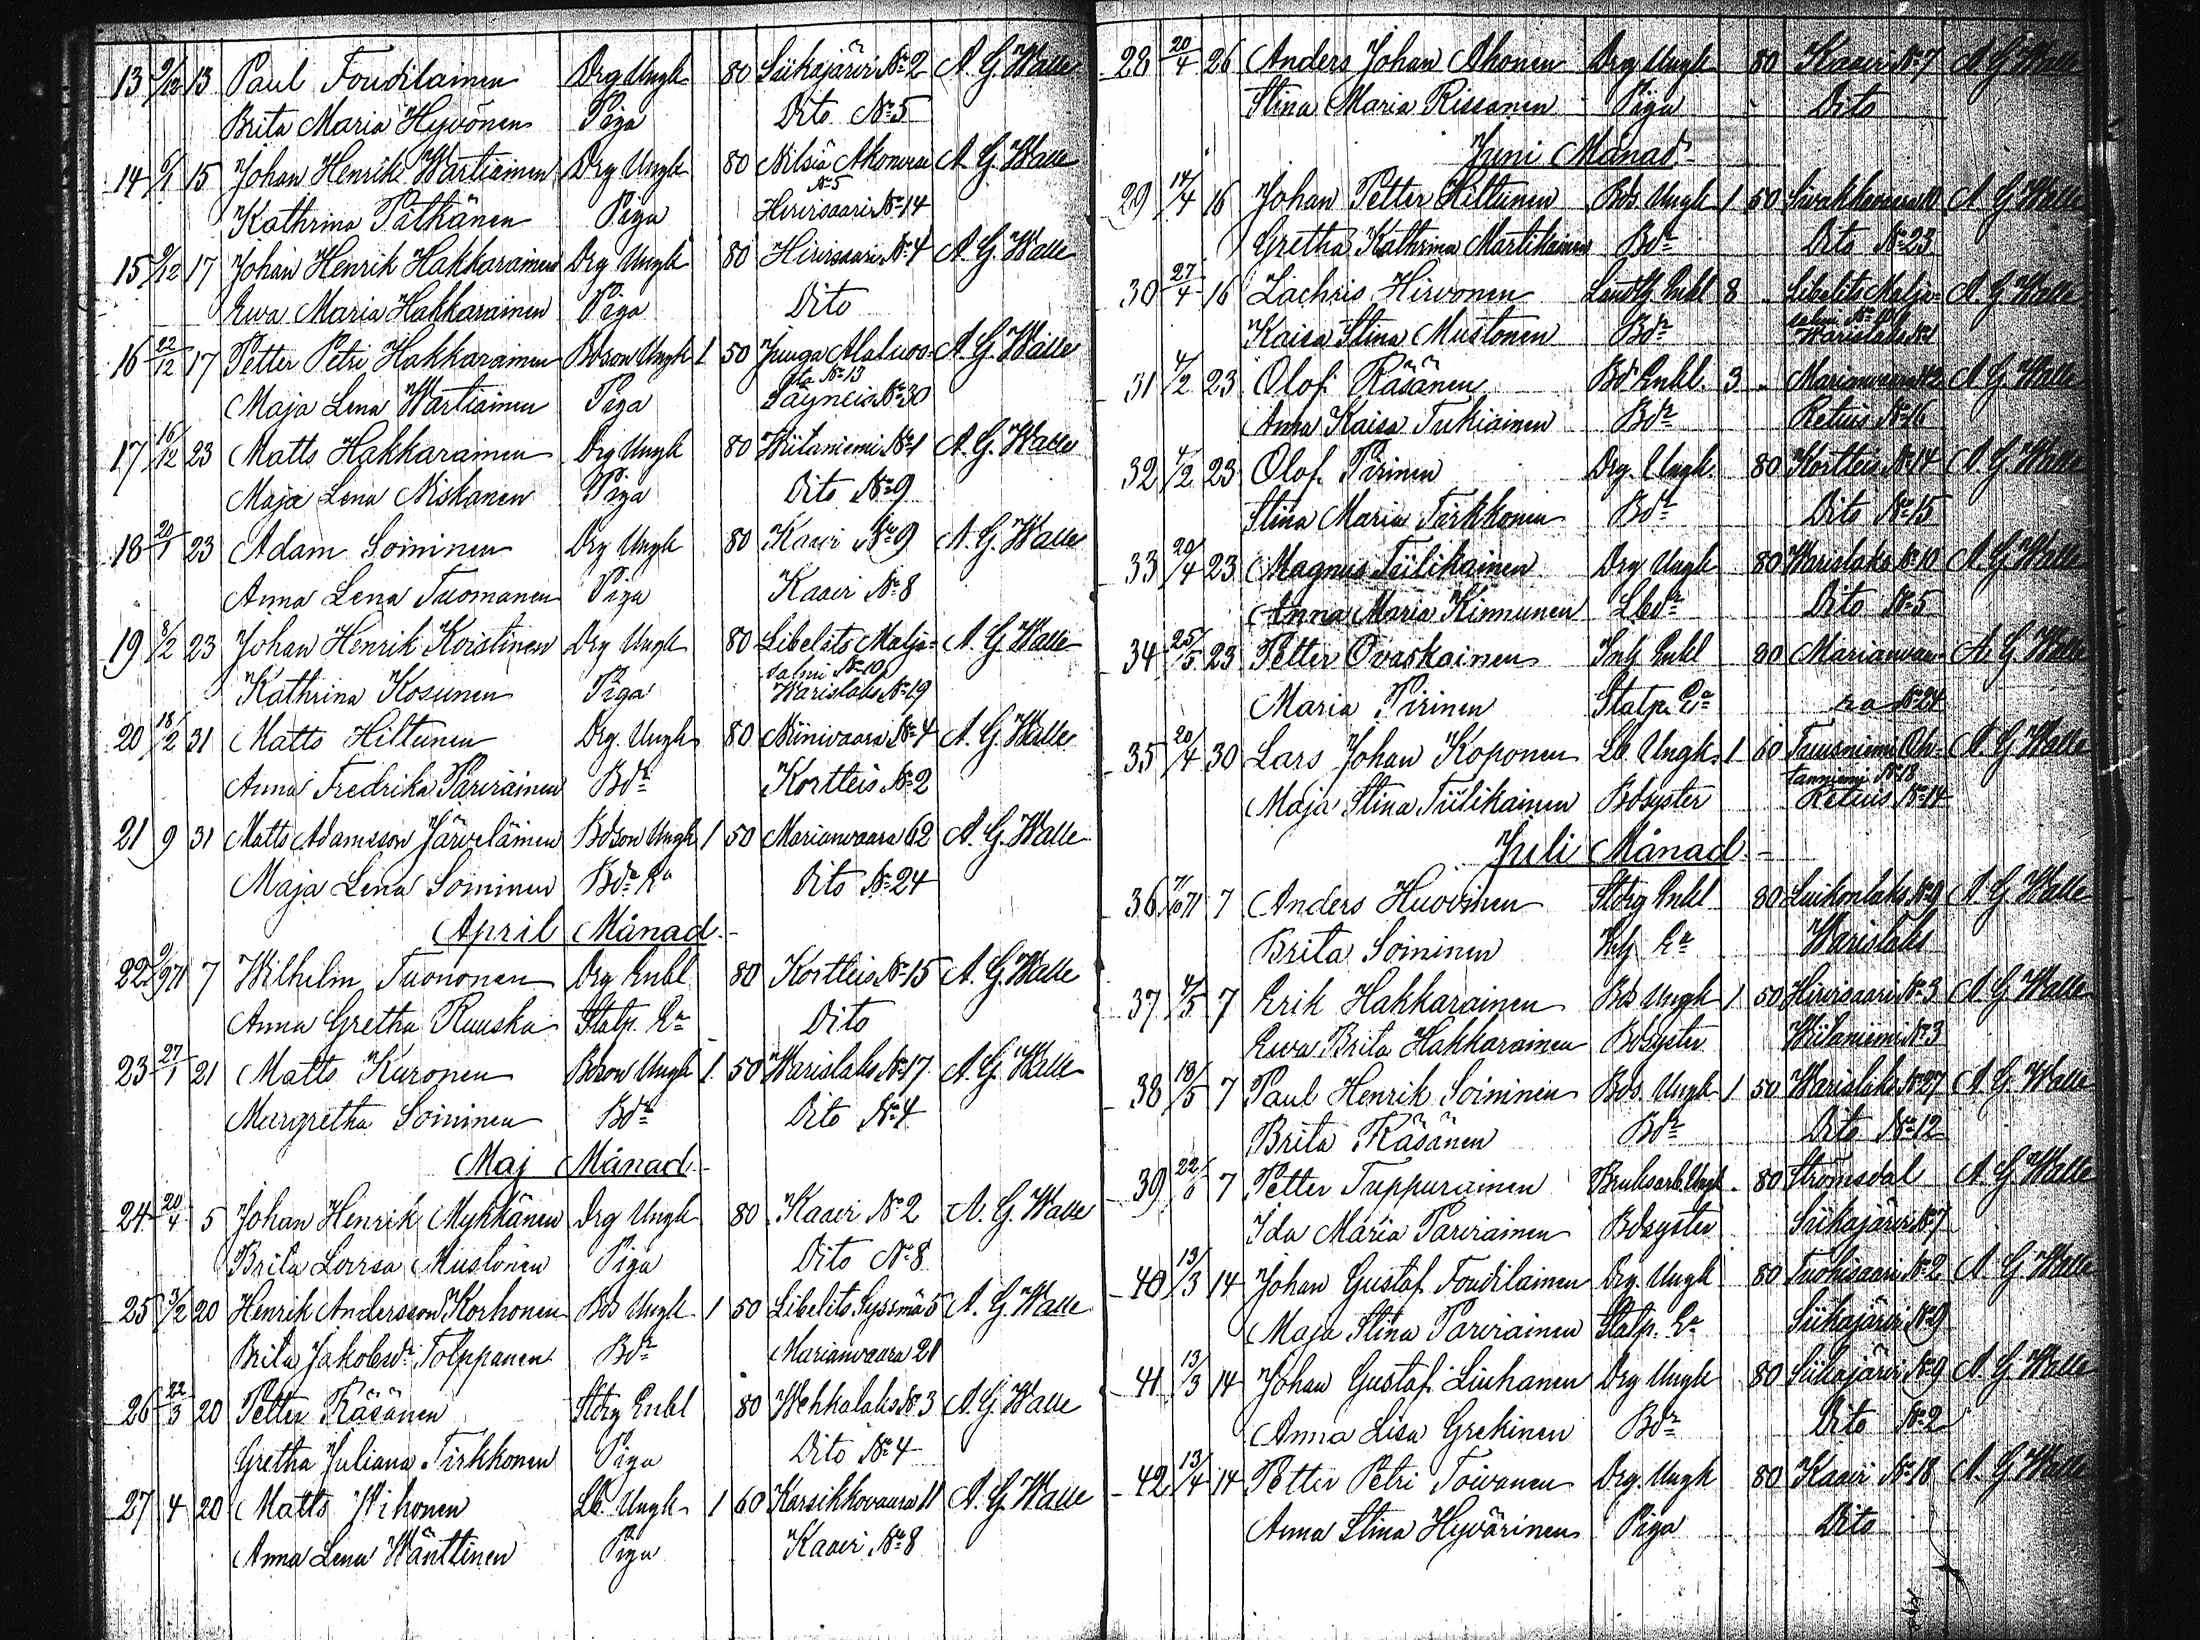 13 9/12 13 Paul Toudilainen Drg Ungk 80 Siikajärvi No 2 A. G. Walle
Brita Maria Hyvönen Piga Dito No 5
14 9/1 15 Johan Henrik Wartiainen Drg Ungk 80 Nilsiä A. G. Walle
No 5
Kathrina Pätkänen Piga Hirvisaari No 14
15 9/12 17 Johan Henrik Hakkarainen Drg Ungk 80 Hirvisaari No 4 A. G. Walle
Ewa Maria Hakkarainen Piga Dito
16 22/12 17 Petter Petri Hakkarainen Bdson Ungk 1 50 Juuga Aluluos- A. G. Walle
ta No 13
Maja Lena Wartiainen Piga Säyneis No 30
17 16/12 23 Matts Hakkarainen Drg Ungk 80 Wiitaniemi No 1 A. G. Walle
Maja Lena Niskanen Piga Dito No 9
18 20/1 23 Adam Soininen Drg Ungk 80 Kaavi No 9 A. G. Walle
Anna Lena Tuomanen Piga Kaavi No 8
19 8/2 23 Johan Henrik Koistinen Drg Ungk 80 Libelits Malja- A. G. Walle
salmi No 10
Kathrina Kosunen Piga Warislaks No 19
20 18/2 31 Matts Hiltunen Drg. Ungk 80 Niinivaara No 4 A. G. Walle
Anna Fredrika Parviainen Bdr Kortteis No 2
21 9 31 Matts Adamsson Järveläinen Bdson Ungk 1 50 Marianvaara 62 A. G. Walle
Maja Lena Soininen Bdr Ea Dito No 24
April Månad.
22 7 Wilhelm Tuononen Drg Enkl 80 Kortteis No 15 A. G. Walle
Anna Gretha Ruuska Statp. Ea Dito
23 27/1 21 Matts Kuronen Bdson Ungk 1 50 Warislaks No 17 A. G. Walle
Margretha Soininen Bdr Dito No 4
Maj Månad.
24 20/4 5 Johan Henrik Mykkänen Drg Ungk 80 Kaavi No 2 A. G. Walle
Brita Lovisa Mustonen Piga Dito No 8
25 3/2 20 Henrik Andersson Korhonen Bds Ungk 1 50 Libelits Sysmä 5 A. G. Walle
Brita Jakobsdr Tolppanen Bdr Marianvaara 21
26 22/3 20 Petter Räsänen Stdrg Enkl 80 Wehkalaks No 3 A. G. Walle
Gretha Juliana Tirkkonen Piga Dito No 4
27 4 20 Matts Wihonen Lb. Ungk 1 60 Karsikkovaara 11 A. G. Walle
Anna Lena Wänttinen Piga Kaavi No 8
28 20/4 26 Anders Johan Ahonen Drg Ungk 80 Kaavi No 7 A G Walle
Stina Maria Rissanen Piga Dito
Juni Månad.
29 14/4 16 Johan Petter Hiltunen Bds Ungk 1 50 Sivakkavaara 10 A G Walle
Gretha Kathrina Martikainen Bdr Dito No 23
30 27/4 16 Zachris Hirvonen Enkl 8 Libelits Malja- A. G. Walle
salmi No 10
Kaisa Stina Mustonen Bdr Warislaks No 1
31 4/2 23 Olof Räsänen Bd Enkl. 3 Marianvaara A G Walle
Anna Kaisa Tukiainen Bdr Retuis No 16
32 4/2 23 Olof Pirinen Drg. Ungk. 80 Kortteis No 14 A. G Walle
Stina Maria Tirkkonen Bdr Dito No 15
33 20/4 23 Magnus Tiilikainen Drg Ungk 80 Warislaks No 10 A G Walle
Anna Maria Kinnunen Lbdr Dito No 5
34 25/5 23 Petter Ovaskainen Inh Enkl 80 Marianvaa- A. G Walle
Maria Pirinen Statp. Ea ra No 24
35 20/4 30 Lars Johan Koponen Lb. Ungk. 1 60 Tuusniemi Oh- A G Walle
tanniemi No 18
Maja Stina Tiilikainen Bdsyster Retuis No 14
Juli Månad.
36 7 Anders Huovinen Stdrg Enkl 80 Luikonlaks No 9 A G Walle
Brita Soininen Inh Ea Warislaks
37 4/5 7 Erik Hakkarainen Bds Ungk 1 50 Hirvisaari No 3 A G Walle
Ewa Brita Hakkarainen Bdsyster Wiitaniemi No 3
38 18/5 7 Paul Henrik Soininen Bds. Ungk 1 50 Warislaks No 27 A G Walle
Brita Räsänen Bdr Dito No 12
39 22/6 7 Petter Tuppurainen Bruksarb. Ungk 80 Strömsdal A G Walle
Ida Maria Parviainen Bdsyster Siikajärvi No 7
40 13/3 14 Johan Gustaf Toudilainen Drg Ungk 80 Tuohisaari No 2 A G Walle
Maja Stina Parviainen Statp. Ea Siikajärvi No 9
41 13/3 14 Johan Gustaf Liuhanen Drg Ungk 80 Siikajärvi No 9 A. G. Walle
Anna Lisa Grekinen Bdr Dito No 2
42 13/4 14 Petter Petri Toivanen Drg. Ungk 80 Kaavi No 18 A. G Walle
Anna Stina Hyvärinen Piga Dito